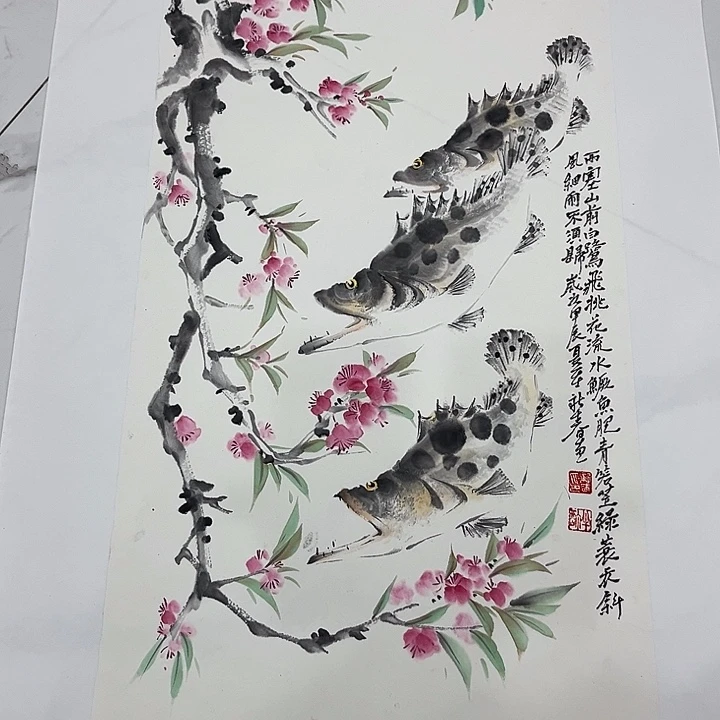 西塞山前白鹭飛桃花流水鳜魚肥青箬笠綠蓑衣斜
風細雨不須歸歲次甲辰夏至